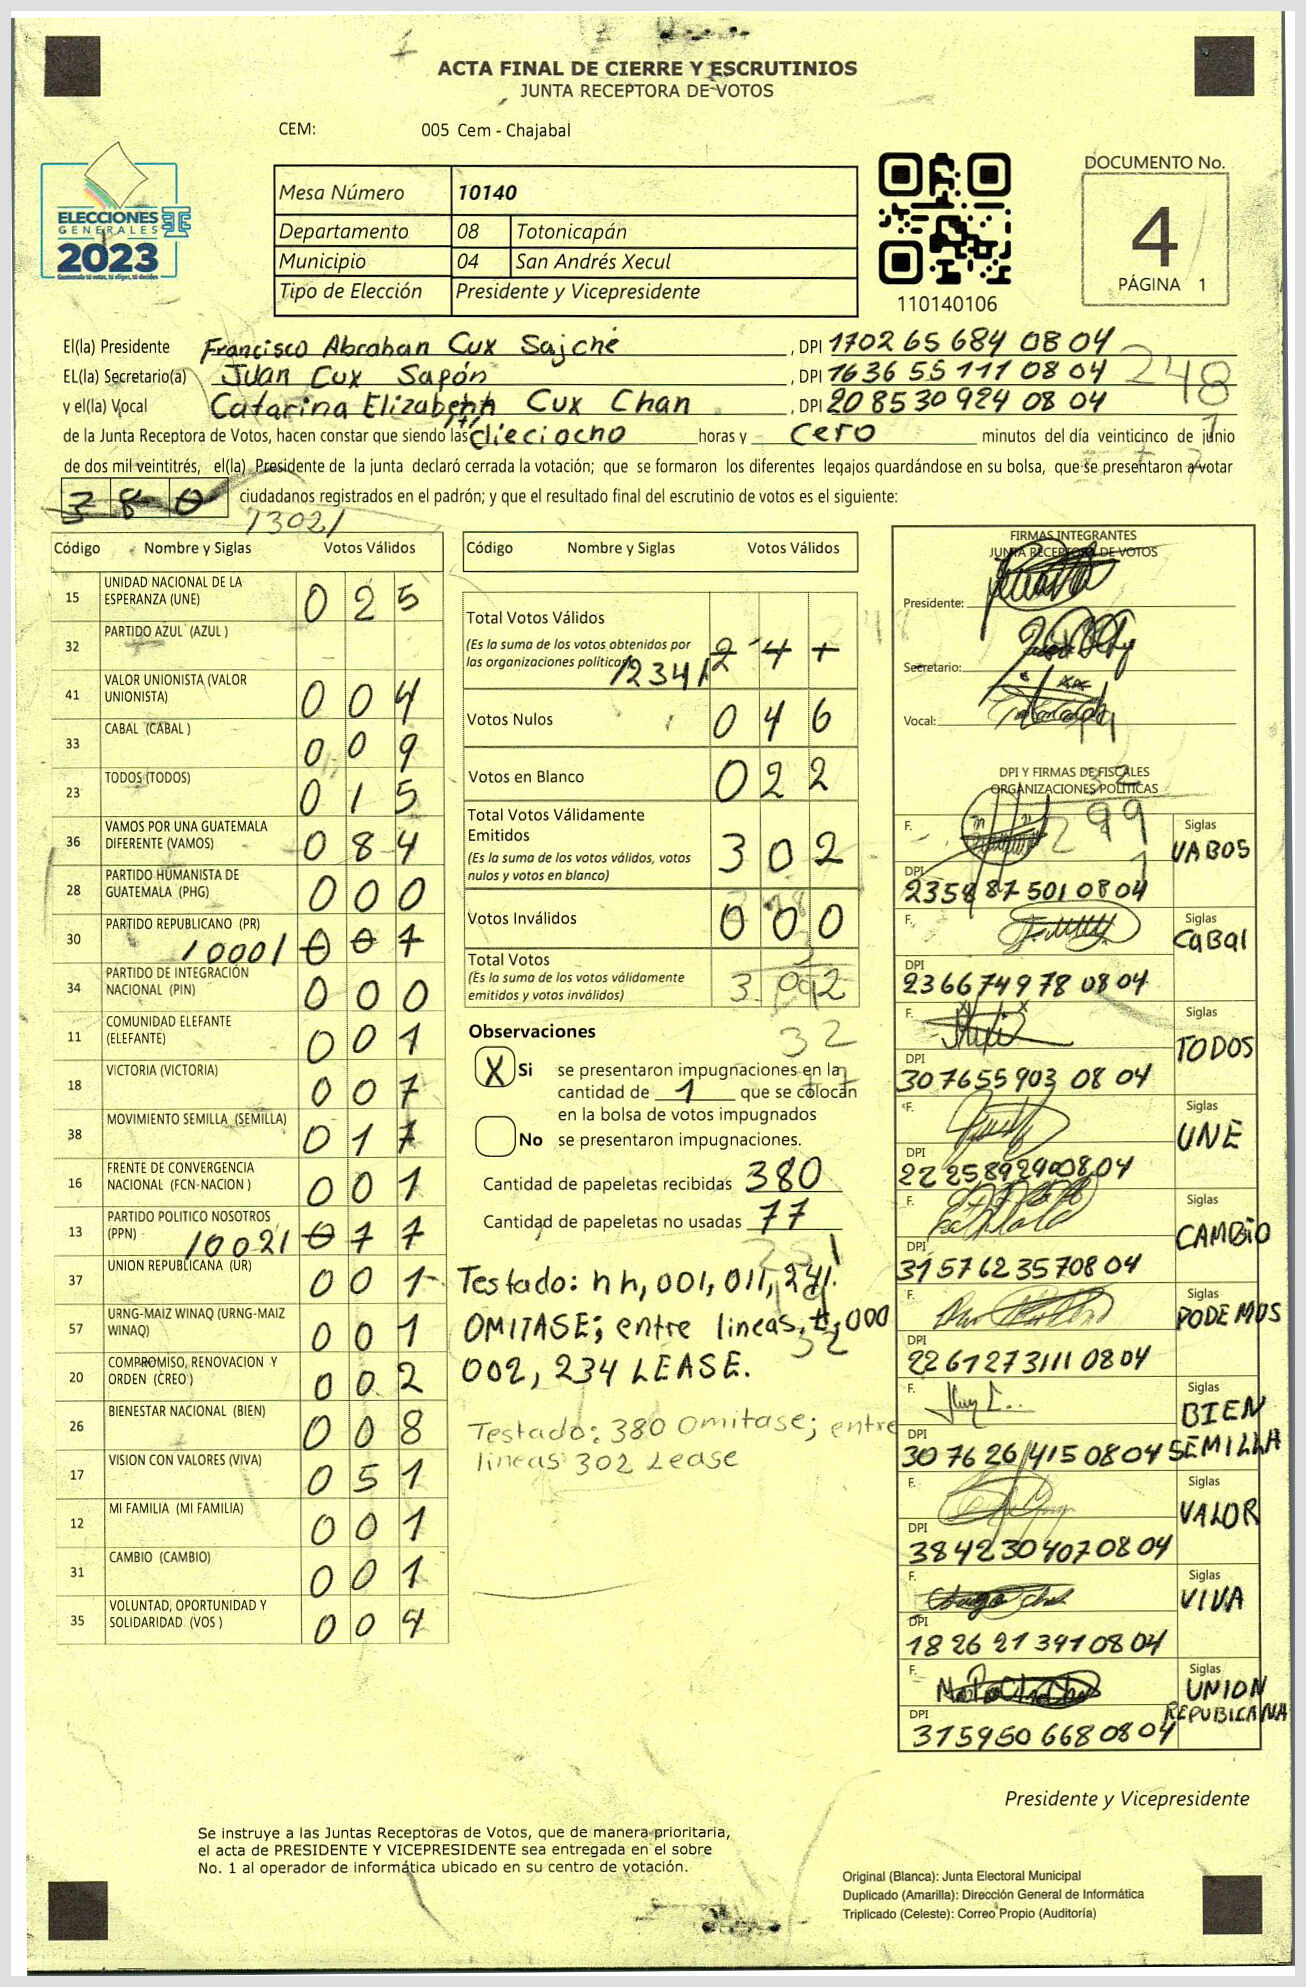 ACTA FINAL DE CIERRE Y ESCRUTINIOS
JUNTA RECEPTORA DE VOTOS
CEM: 005 Cem - Chajabal
ELECCIONES
GENERALES
2023
Guatemala tú votas, tú eliges, tú decides
Mesa Número 10140
Departamento 08 Totonicapán
Municipio 04 San Andrés Xecul
Tipo de Elección Presidente y Vicepresidente
110140106
DOCUMENTO No.
4
PÁGINA 1
El(la) Presidente Francisco Abrahan Cux Sajché , DPI 1702 65 684 08 04
EL(la) Secretario(a) Juan Cux Sapón , DPI 1636 55 111 08 04
248
y el(la) Vocal Catarina Elizabeth Cux Chan , DPI 20 8530 924 08 04
de la Junta Receptora de Votos, hacen constar que siendo las dieciocho horas y cero minutos del día veinticinco de junio
de dos mil veintitrés, el(la) Presidente de la junta declaró cerrada la votación; que se formaron los diferentes legajos quardándose en su bolsa, que se presentaron a votar
380 ciudadanos registrados en el padrón; y que el resultado final del escrutinio de votos es el siguiente:
/302/
Código Nombre y Siglas Votos Válidos
15 UNIDAD NACIONAL DE LA ESPERANZA (UNE) 025
32 PARTIDO AZUL (AZUL )
41 VALOR UNIONISTA (VALOR UNIONISTA) 004
33 CABAL (CABAL ) 009
23 TODOS (TODOS) 015
36 VAMOS POR UNA GUATEMALA DIFERENTE (VAMOS) 084
28 PARTIDO HUMANISTA DE GUATEMALA (PHG) 000
30 PARTIDO REPUBLICANO (PR) /000/ 001
34 PARTIDO DE INTEGRACIÓN NACIONAL (PIN) 000
11 COMUNIDAD ELEFANTE (ELEFANTE) 001
18 VICTORIA (VICTORIA) 007
38 MOVIMIENTO SEMILLA (SEMILLA) 017
16 FRENTE DE CONVERGENCIA NACIONAL (FCN-NACION ) 001
13 PARTIDO POLITICO NOSOTROS (PPN) /002/ 011
37 UNION REPUBLICANA (UR) 001
57 URNG-MAIZ WINAQ (URNG-MAIZ WINAQ) 001
20 COMPROMISO, RENOVACION Y ORDEN (CREO ) 002
26 BIENESTAR NACIONAL (BIEN) 008
17 VISION CON VALORES (VIVA) 051
12 MI FAMILIA (MI FAMILIA) 001
31 CAMBIO (CAMBIO) 001
35 VOLUNTAD, OPORTUNIDAD Y SOLIDARIDAD (VOS ) 004
Código Nombre y Siglas Votos Válidos
Total Votos Válidos
(Es la suma de los votos obtenidos por las organizaciones políticas) /234/ 241
Votos Nulos 046
Votos en Blanco 022
Total Votos Válidamente Emitidos 302
(Es la suma de los votos válidos, votos nulos y votos en blanco)
Votos Inválidos 000
Total Votos 302
(Es la suma de los votos válidamente emitidos y votos inválidos)
Observaciones
32
X Si se presentaron impugnaciones en la
cantidad de 1 que se colocan
en la bolsa de votos impugnados
No se presentaron impugnaciones.
Cantidad de papeletas recibidas 380
Cantidad de papeletas no usadas 77
Testado: hh, 001, 011, 241.
OMITASE; entre lineas, 000
002, 234 LEASE.
Testado: 380 Omitase; entre
lineas 302 Lease
FIRMAS INTEGRANTES
JUNTA RECEPTORA DE VOTOS
Presidente:
Secretario:
Vocal:
DPI Y FIRMAS DE FISCALES
ORGANIZACIONES POLÍTICAS
299
F. Siglas VABOS
DPI 2358 87 501 08 04
F. Siglas CaBal
DPI 23 66 74 978 08 04
F. Siglas TODOS
DPI 30 7655 903 08 04
F. Siglas UNE
DPI 22 25 892400804
F. Siglas CAMBIO
DPI 31 57 62 35 708 04
F. Siglas PODEMOS
DPI 22 61 27 3111 08 04
F. Siglas BIEN
DPI 30 76 26 415 08 04 SEMILLA
F. Siglas VALOR
DPI 38 42 30 407 08 04
F. Siglas VIVA
DPI 18 26 21 391 08 04
F. Siglas UNION REPUBICANA
DPI 315950 668 08 04
Presidente y Vicepresidente
Se instruye a las Juntas Receptoras de Votos, que de manera prioritaria,
el acta de PRESIDENTE Y VICEPRESIDENTE sea entregada en el sobre
No. 1 al operador de informática ubicado en su centro de votación.
Original (Blanca): Junta Electoral Municipal
Duplicado (Amarilla): Dirección General de Informática
Triplicado (Celeste): Correo Propio (Auditoría)